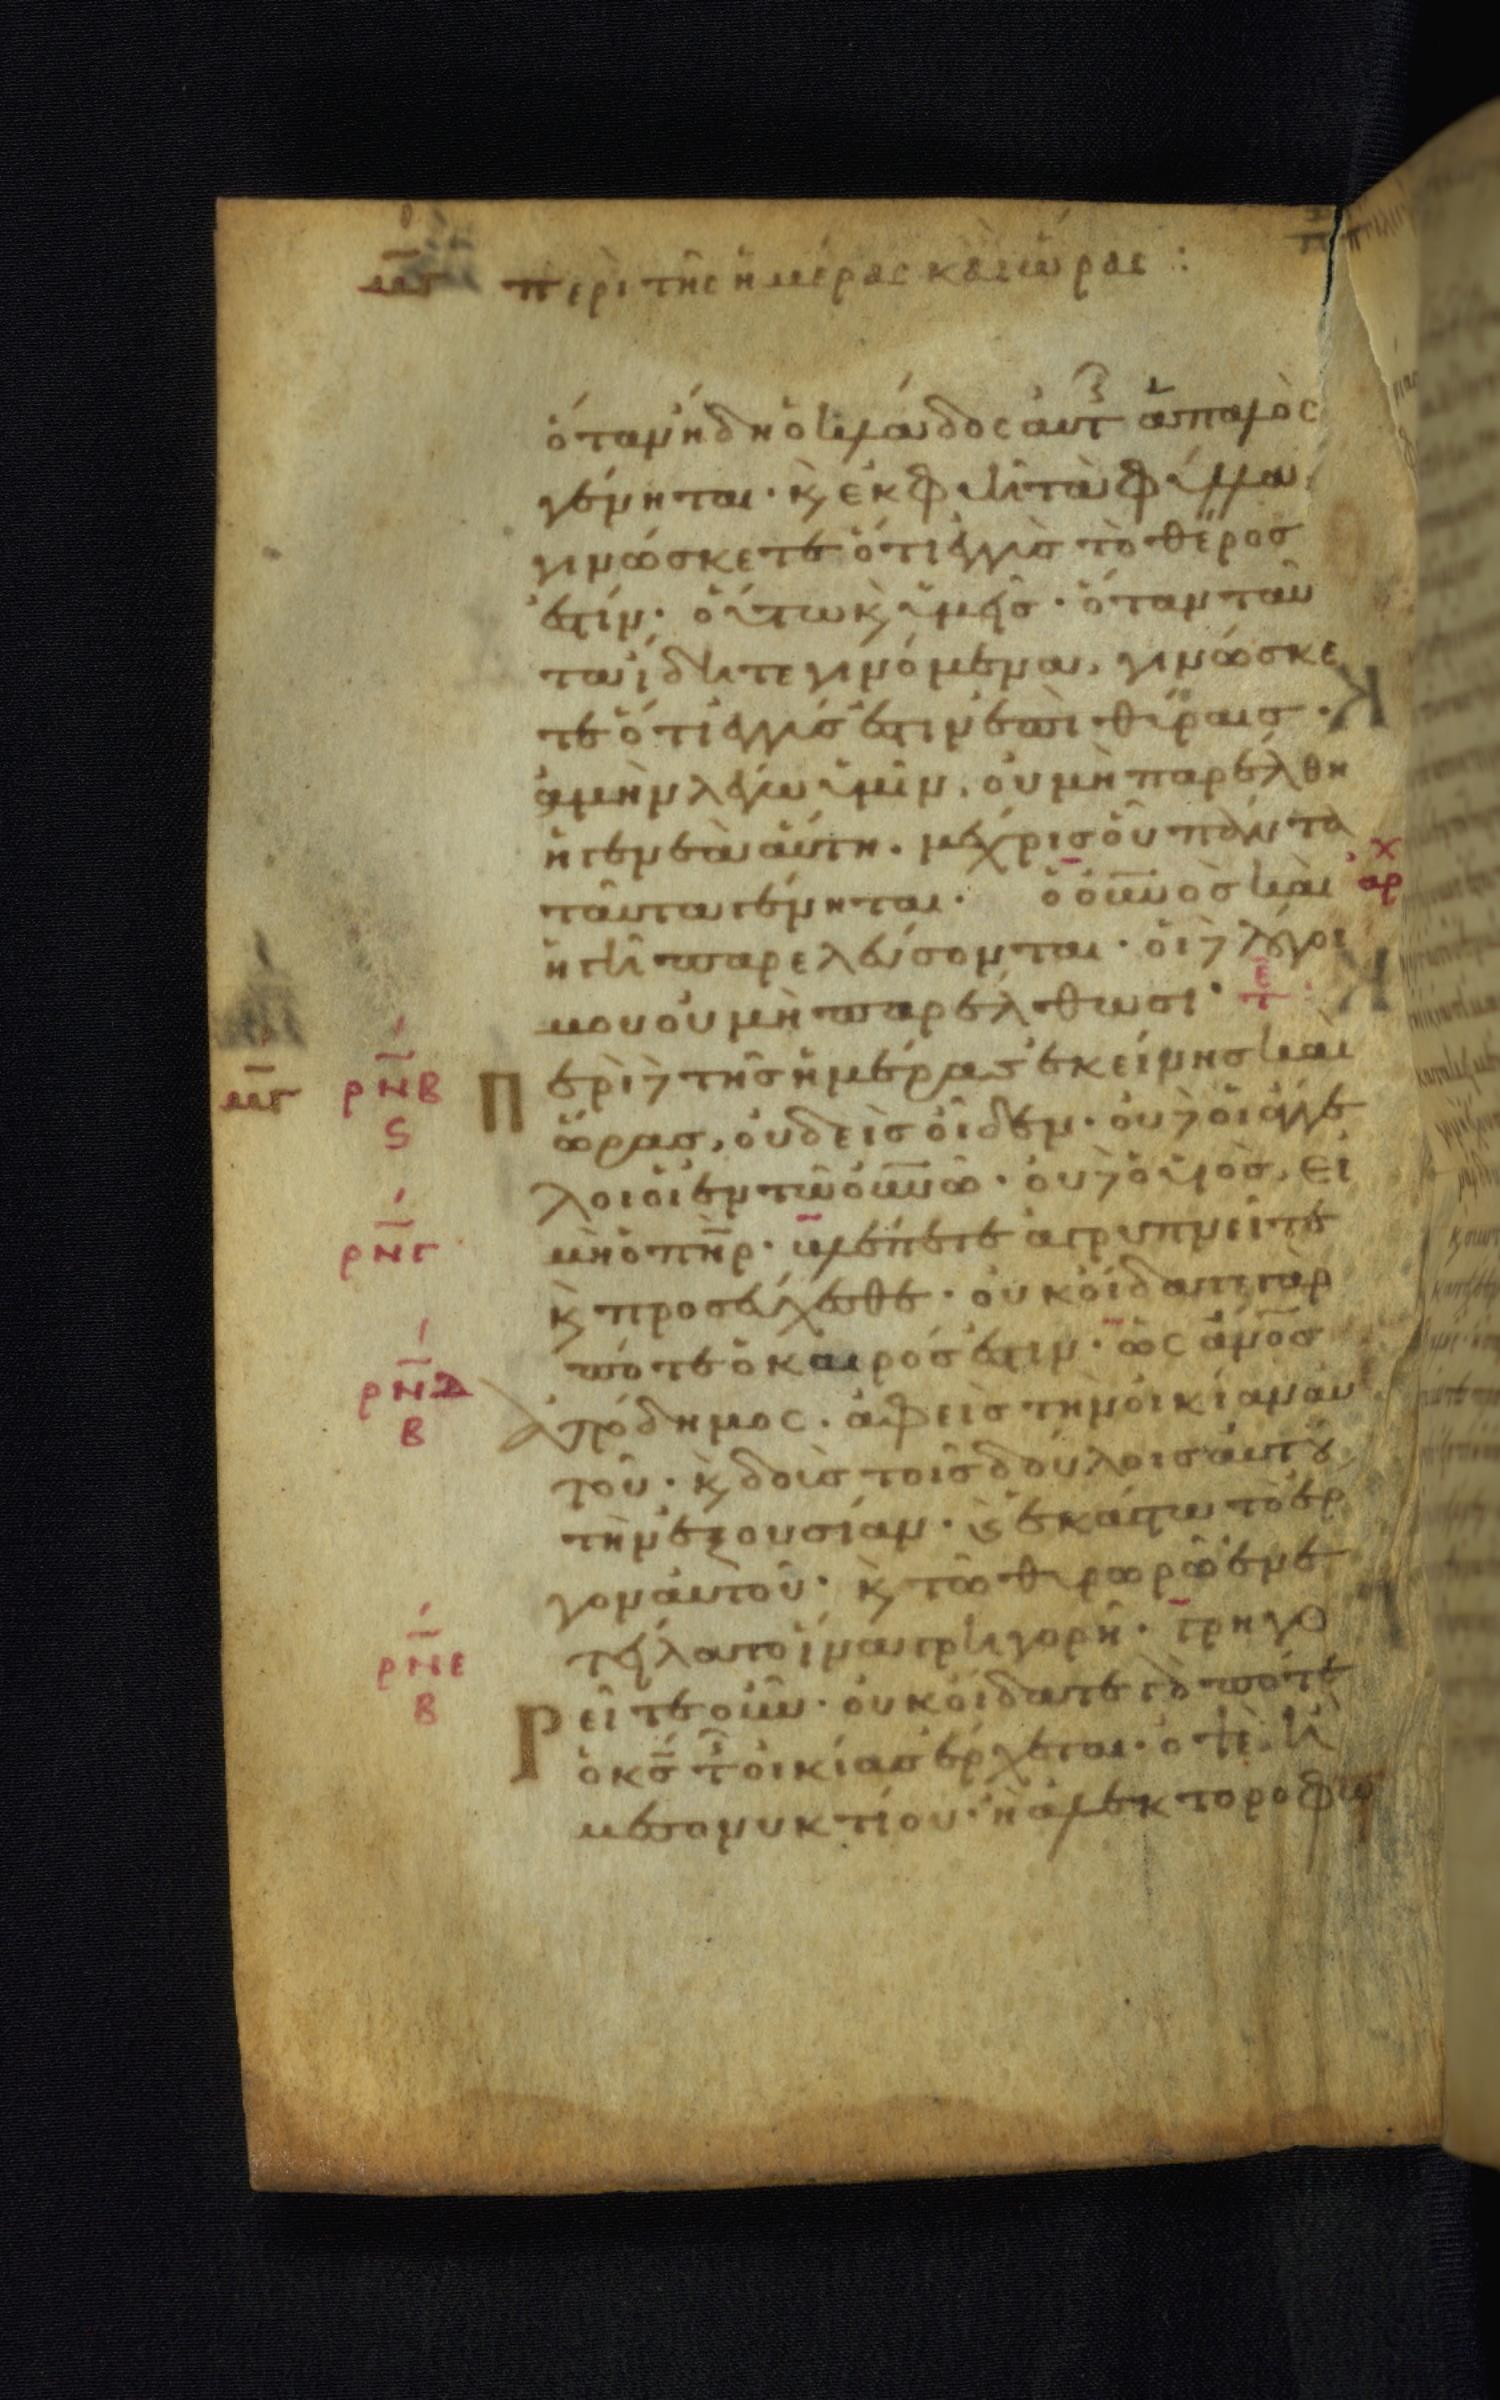 μγ περὶ τῆς ἡμέρας καὶ ὥρας :
ὅταν ἤδη ὁ κλάδος αὐτ ἁπαλὸς
γένηται · κ ἐκφύει τὰ φύλλα
γινώσκετε ὅτι ἐγγὺς τὸ θέρος
ἐστίν · οὕτω κ ὑμεῖς · ὅταν ταῦ
τα ἴδητε γινόμενα, γινώσκε
τε ὅτι ἐγγύς ἐστιν ἐπὶ θύραις ·
ἀμὴν λέγω ὑμῖν, οὐ μὴ παρέλθη
ἡ γενεὰ αὕτη · μέχρις οὗ πάντα
ταῦτα γένηται · ὁ οὐνὸς καὶ αρχ
ἡ γῆ παρελεύσονται · οἱ δὲ λόγοι
μου οὐ μὴ παρέλθωσι · τε
μγ ρνβ ς Περὶ δὲ τῆς ἡμέρας ἐκείνης καὶ
ὥρας, οὐδεὶς οἶδεν · οὐδὲ οἱ ἄγγε
λοι οἱ ἐν τῶ οὐνῶ · οὐδὲ ὁ υἱὸς, εἰ
ρνγ μὴ ὁ πηρ · βλέπετε ἀγρυπνεῖτε
κ προσεύχεσθε · οὐκ οἴδατε γὰρ
πότε ὁ καιρός ἐστιν · ὡς ἀνος
ρνδ β ἀπόδημος · ἀφεὶς τὴν οἰκίαν αὐ
τοῦ · κ δοὺς τοῖς δούλοις αὐτοῦ
τὴν ἐξουσίαν · κ ἑκάστω τὸ ἔρ
γον αὐτοῦ · κ τῶ θυρωρῶ ἐνε
τείλατο ἵνα γρηγορῆ · γρηγο
ρνε β Ρεῖτε οὖν · οὐκ οἴδατε γὰρ πότε
ὁ κς τῆς οἰκίας ἔρχεται · ὀψὲ · ἢ
μεσονυκτίου · ἢ ἀλεκτοροφω